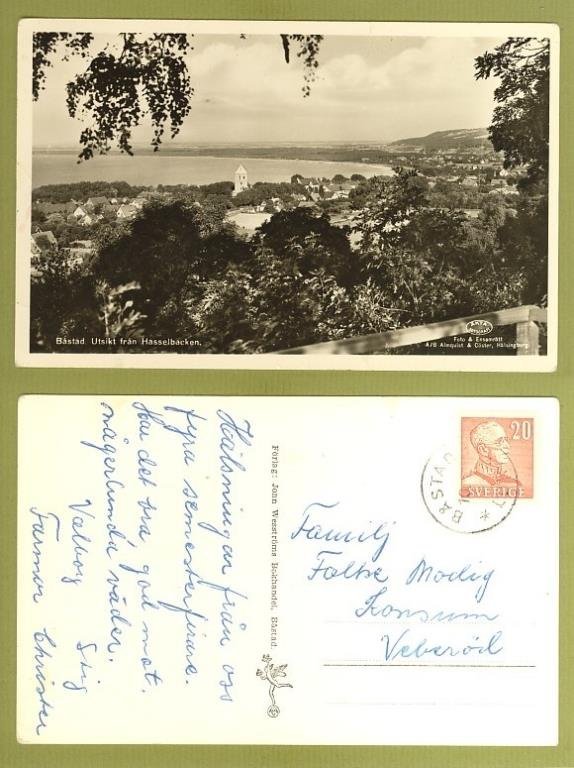 Båstad. Utsikt från Hasselbacken.
ÄKTA
Foto & Ensamrätt
A/B Almquist & Cöster, Hälsingborg
Hälsningar från oss
fyra semesterfirare.
Har det bra god mat.
någerlunda väder.
Valborg Stig
Farmor Christer
Förlag: John Wesströms Bokhandel, Båstad.
20
SVERIGE
BÅSTAD
Familj
Folke Modig
Konsum
Veberöd